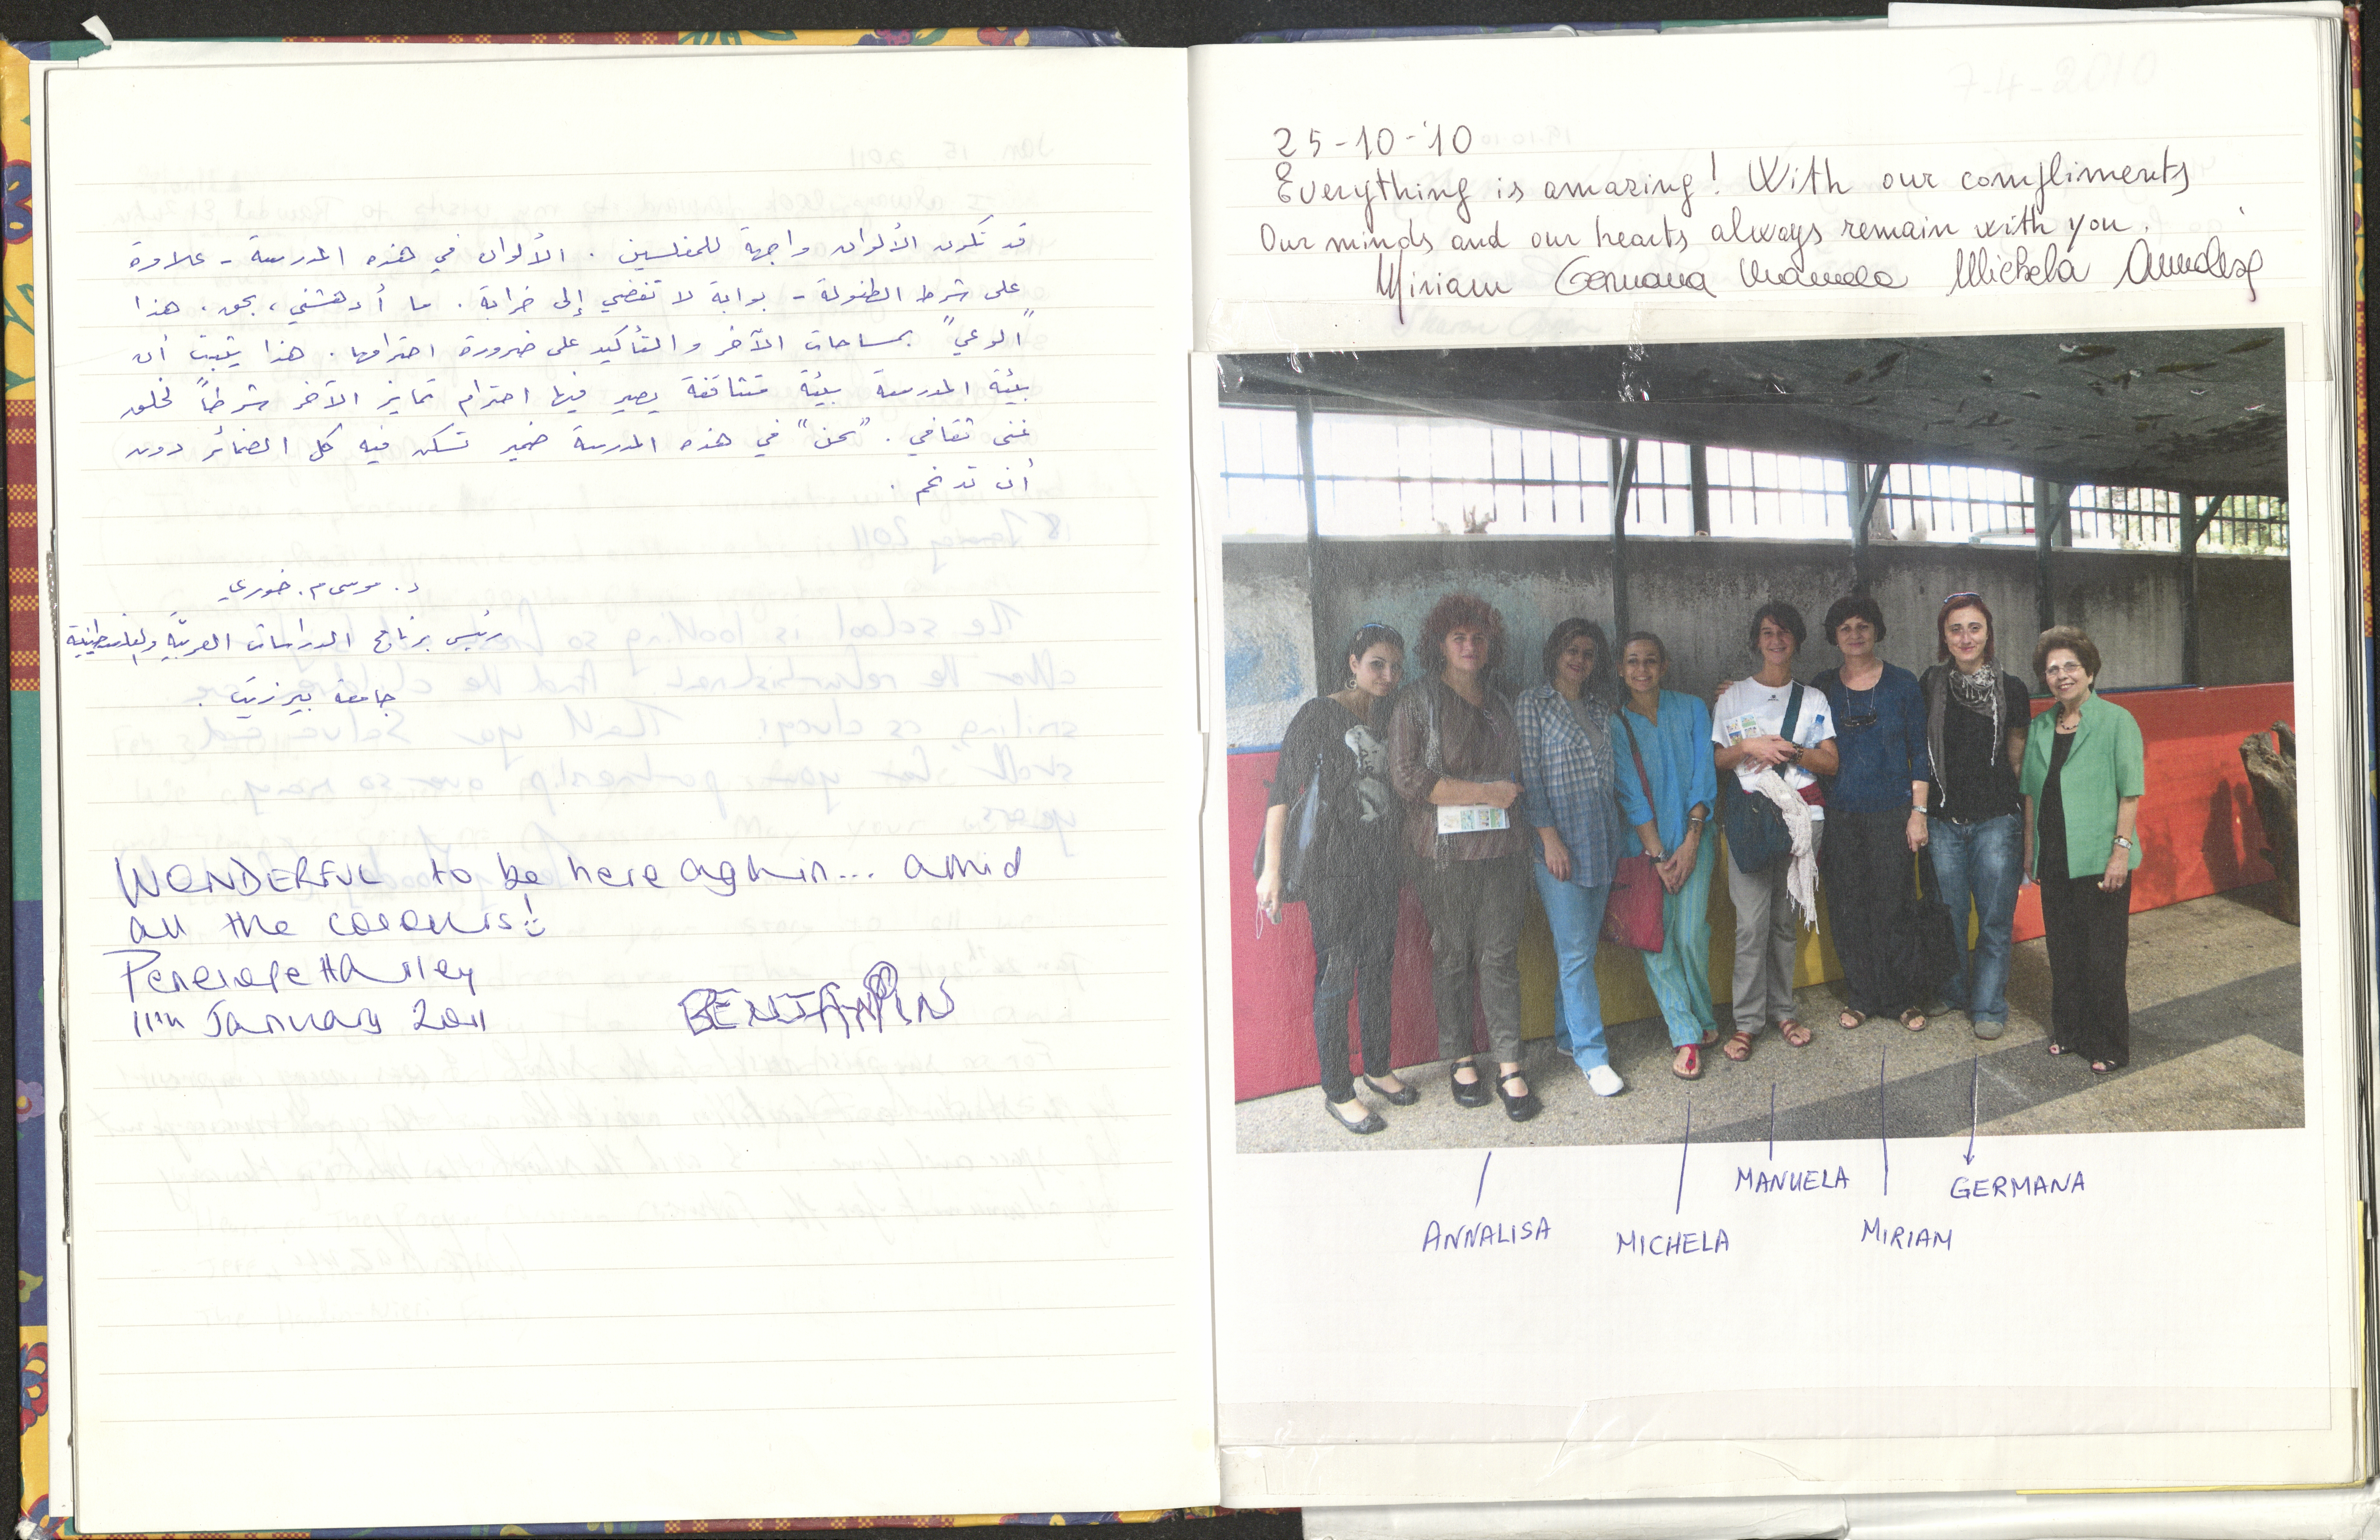 قد تكون الألوان واجهة للمفلسين. الألوان في هذه المدرسة - علاوة
على شرط الطفولة - بوابة لا تفضي إلى خرابة. ما أدهشني، بحق، هذا
"الوعي" بمساحات الآخر والتأكيد على ضرورة احترامها. هذا يثبت أن
بيئة المدرسة بيئة متثاقفة يصير فيها احترام تمايز الآخر شرطاً لخلق
غنى ثقافي. "نحن" في هذه المدرسة ضمير تسكن فيه كل الضمائر دون
أن تدغم.
د. موسى م. خوري
رئيس برنامج الدراسات العربية والفلسطينية
جامعة بيرزيت.
WONDERFUL to be here again... amid
all the colours!
Penelope Harley
11th January 2011
BENJAMIN
7-4-2010
25-10-'10
Everything is amazing! With our compliments
Our minds and our hearts always remain with you.
Miriam Germana Manuela Michela Annalisa
MANUELA
GERMANA
ANNALISA
MICHELA
MIRIAM